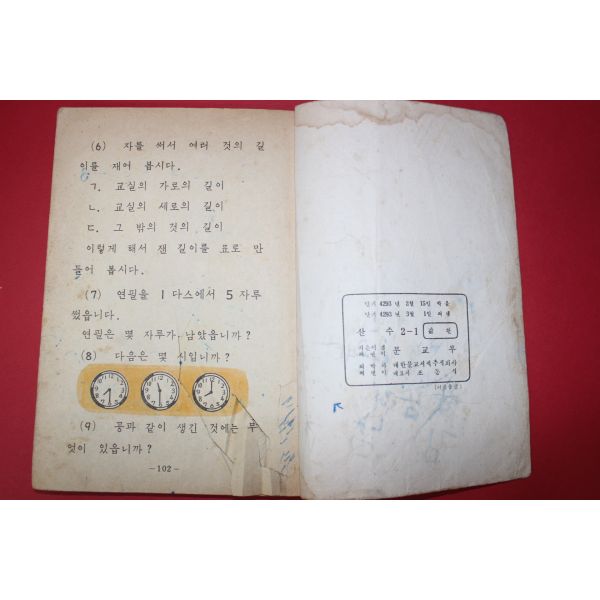 (6) 자를 써서 여러 것의 길
이를 재어 봅시다.
ㄱ. 교실의 가로의 길이
ㄴ. 교실의 세로의 길이
ㄷ. 그 밖의 것의 길이
이렇게 해서 잰 길이를 표로 만
들어 봅시다.
(7) 연필을 1 다스에서 5 자루
썼읍니다.
연필은 몇 자루가 남았읍니까?
(8) 다음은 몇 시입니까?
(9) 공과 같이 생긴 것에는 무
엇이 있읍니까?
-102-
단기 4293 년 2월 15일 박음
단기 4293 년 3월 1일 펴냄
산 수 2-1
문 교 부
대한문교서적주식회사